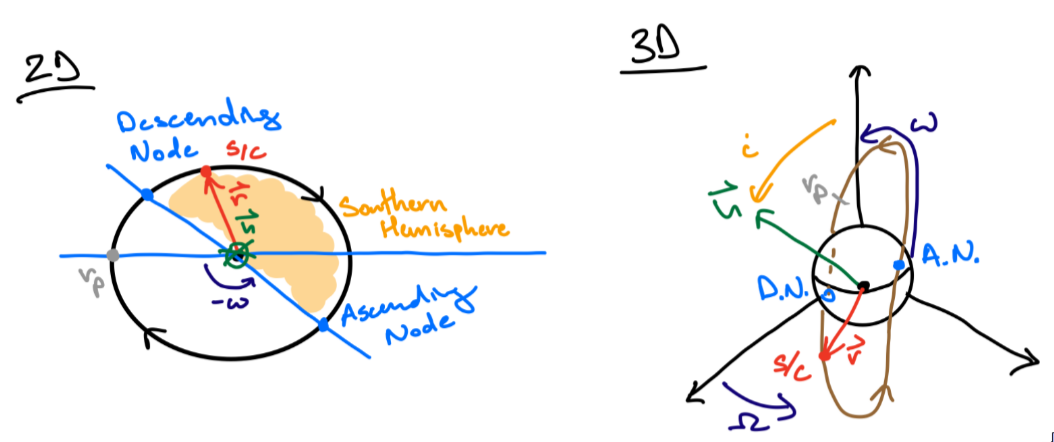 2D
Descending
Node
s/c
r
h
Southern
Hemisphere
rp
-ω
Ascending
Node
3D
i
ω
rp
h
A.N.
D.N.
s/c
r
Ω